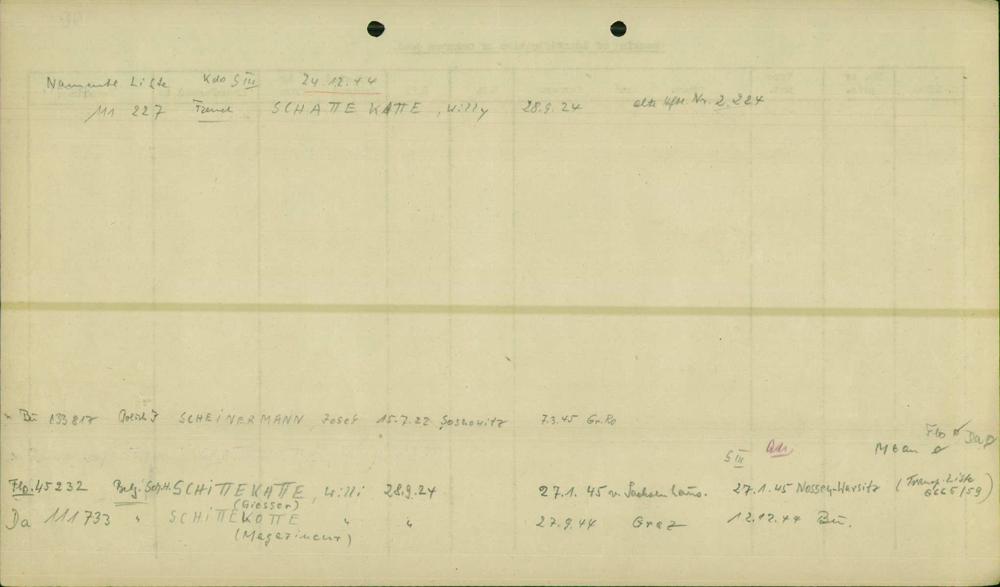 Namentl Liste Kdo S III 24.12.44
M 227 Franz SCHATTEKATTE, Willy 28.9.24 alte Hftl. Nr. 2 224
Bu 133817 Poln J SCHEINERMANN, Josef 15.7.22 Sosnowitz 7.3.45 Gr.Ro
Flo Da
S III M6au
Flo. 45232 Belg. SCHITTEKATTE, Willi 28.9.24 27.1.45 v. Sachsenhaus. 27.1.45 (Transp. Liste
(Giesser) 6665/59)
Da 111733 " SCHITTEKOTTE " " 27.9.44 Graz 12.12.44 Bu.
(Magazineur)